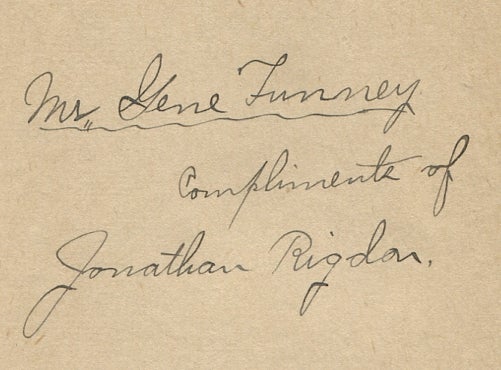 Mr. Gene Tunney
Compliments of
Jonathan Rigdon.